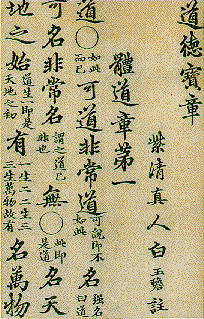 道德寶章
紫清真人白玉蟾註
體道章第一
道〇如此而已可道非常道可說即不如此名強名曰道
可名非常名謂之道已非也無〇此即是道名天
地之始道生一即是天地之初有一生二二生三三生萬物故有名萬物